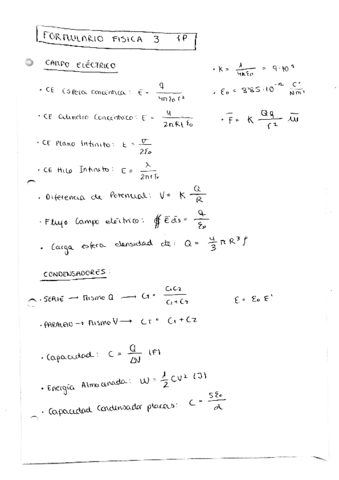 FORMULARIO FISICA 3 1P
CAMPO ELÉCTRICO
· K = 1/4πε₀ = 9·10⁹
· CE Esfera concéntrica: E = q/4πε₀r²
· ε₀ = 8'85·10⁻¹² C²/Nm²
· CE Cilindro Concéntrico: E = q/2πRlε₀
· F = K Qq/r² ū
· CE Plano Infinito: E = σ/2ε₀
· CE Hilo Infinito: E = λ/2πrε₀
· Diferencia de Potencial: V = K Q/R
· Flujo Campo eléctrico: ∯ Eds = q/ε₀
· Carga esfera densidad de: Q = 4/3 π R³ ρ
CONDENSADORES:
· SERIE → Mismo Q → CT = C₁C₂/C₁+C₂
ε = ε₀ ε'
· PARALELO → Mismo V → CT = C₁+C₂
· Capacidad: C = Q/ΔV (F)
· Energía Almacenada: W = 1/2 CV² (J)
· Capacidad Condensador placas: C = Sε₀/d